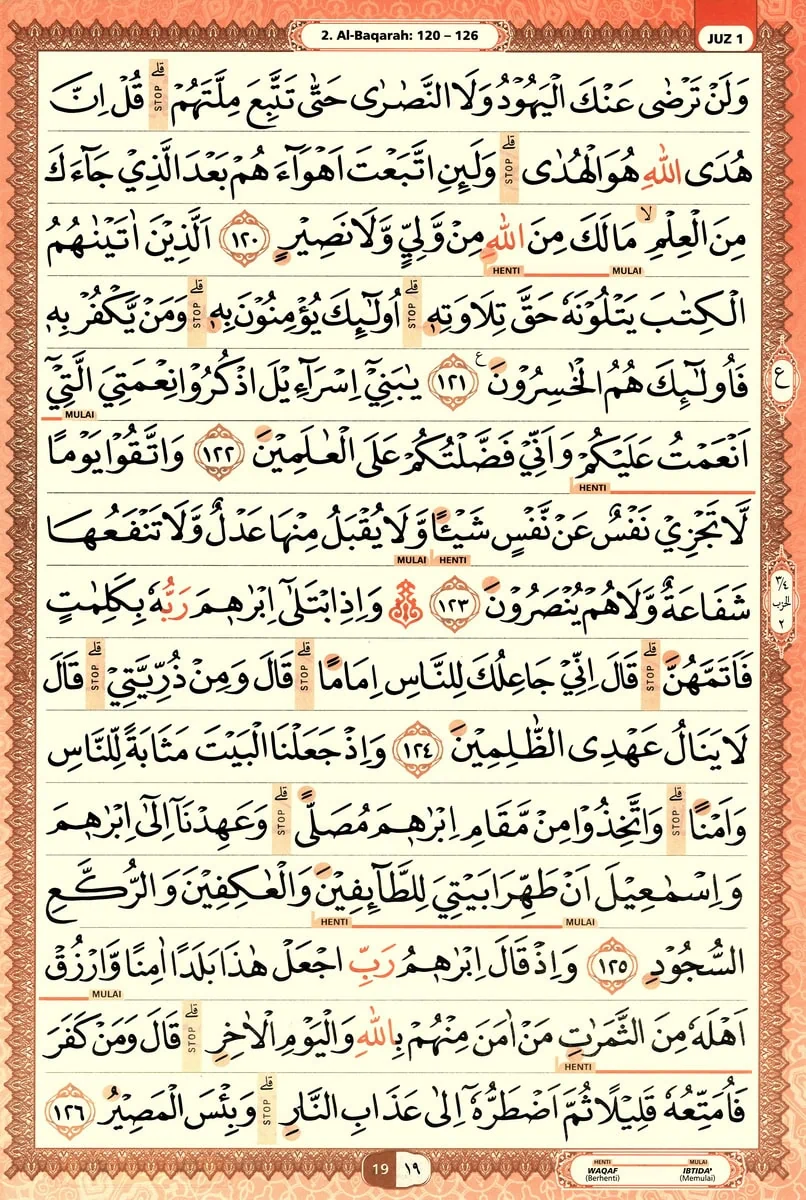 2. Al-Baqarah: 120 – 126
JUZ 1
وَلَنْ تَرْضٰى عَنْكَ الْيَهُوْدُ وَلَا النَّصٰرٰى حَتّٰى تَتَّبِعَ مِلَّتَهُمْ ۗ قُلْ اِنَّ
STOP
هُدَى اللّٰهِ هُوَ الْهُدٰى ۗ وَلَىِٕنِ اتَّبَعْتَ اَهْوَاۤءَ هُمْ بَعْدَ الَّذِيْ جَاۤءَكَ
STOP
مِنَ الْعِلْمِ ۙ مَا لَكَ مِنَ اللّٰهِ مِنْ وَّلِيٍّ وَّلَا نَصِيْرٍ ١٢٠ اَلَّذِيْنَ اٰتَيْنٰهُمُ
HENTI MULAI
الْكِتٰبَ يَتْلُوْنَهٗ حَقَّ تِلَاوَتِهٖ ۗ اُولٰۤىِٕكَ يُؤْمِنُوْنَ بِهٖ ۗ وَمَنْ يَّكْفُرْ بِهٖ
STOP STOP
فَاُولٰۤىِٕكَ هُمُ الْخٰسِرُوْنَ ࣖ ١٢١ يٰبَنِيْٓ اِسْرَاۤءِيْلَ اذْكُرُوْا نِعْمَتِيَ الَّتِيْٓ
ع
MULAI
اَنْعَمْتُ عَلَيْكُمْ وَاَنِّيْ فَضَّلْتُكُمْ عَلَى الْعٰلَمِيْنَ ١٢٢ وَاتَّقُوْا يَوْمًا
HENTI
لَّا تَجْزِيْ نَفْسٌ عَنْ نَّفْسٍ شَيْـًٔا وَّلَا يُقْبَلُ مِنْهَا عَدْلٌ وَّلَا تَنْفَعُهَا
MULAI HENTI
شَفَاعَةٌ وَّلَا هُمْ يُنْصَرُوْنَ ١٢٣ ۞ وَاِذِ ابْتَلٰٓى اِبْرٰهٖمَ رَبُّهٗ بِكَلِمٰتٍ
٣/٤ الحزب ٢
فَاَتَمَّهُنَّ ۗ قَالَ اِنِّيْ جَاعِلُكَ لِلنَّاسِ اِمَامًا ۗ قَالَ وَمِنْ ذُرِّيَّتِيْ ۗ قَالَ
STOP STOP STOP
لَا يَنَالُ عَهْدِى الظّٰلِمِيْنَ ١٢٤ وَاِذْ جَعَلْنَا الْبَيْتَ مَثَابَةً لِّلنَّاسِ
وَاَمْنًا ۗ وَاتَّخِذُوْا مِنْ مَّقَامِ اِبْرٰهٖمَ مُصَلًّى ۗ وَعَهِدْنَآ اِلٰٓى اِبْرٰهٖمَ
STOP STOP
وَاِسْمٰعِيْلَ اَنْ طَهِّرَا بَيْتِيَ لِلطَّاۤىِٕفِيْنَ وَالْعٰكِفِيْنَ وَالرُّكَّعِ
HENTI MULAI
السُّجُوْدِ ١٢٥ وَاِذْ قَالَ اِبْرٰهٖمُ رَبِّ اجْعَلْ هٰذَا بَلَدًا اٰمِنًا وَّارْزُقْ
MULAI
اَهْلَهٗ مِنَ الثَّمَرٰتِ مَنْ اٰمَنَ مِنْهُمْ بِاللّٰهِ وَالْيَوْمِ الْاٰخِرِ ۗ قَالَ وَمَنْ كَفَرَ
STOP
HENTI
فَاُمَتِّعُهٗ قَلِيْلًا ثُمَّ اَضْطَرُّهٗٓ اِلٰى عَذَابِ النَّارِ ۗ وَبِئْسَ الْمَصِيْرُ ١٢٦
STOP
19 ١٩
HENTI MULAI
WAQAF IBTIDA'
(Berhenti) (Memulai)